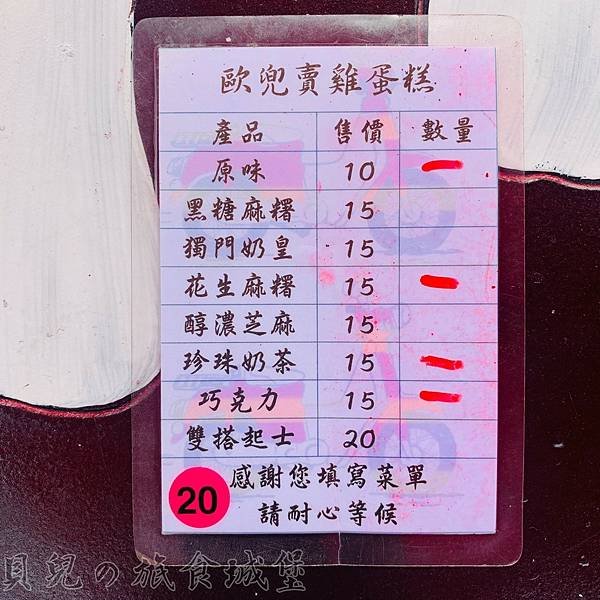 歐兜賣雞蛋糕
產品 售價 數量
原味 10 一
黑糖麻糬 15
獨門奶皇 15
花生麻糬 15 一
醇濃芝麻 15
珍珠奶茶 15 一
巧克力 15 一
雙搭起士 20
20 感謝您填寫菜單
請耐心等候
貝兒の旅食城堡